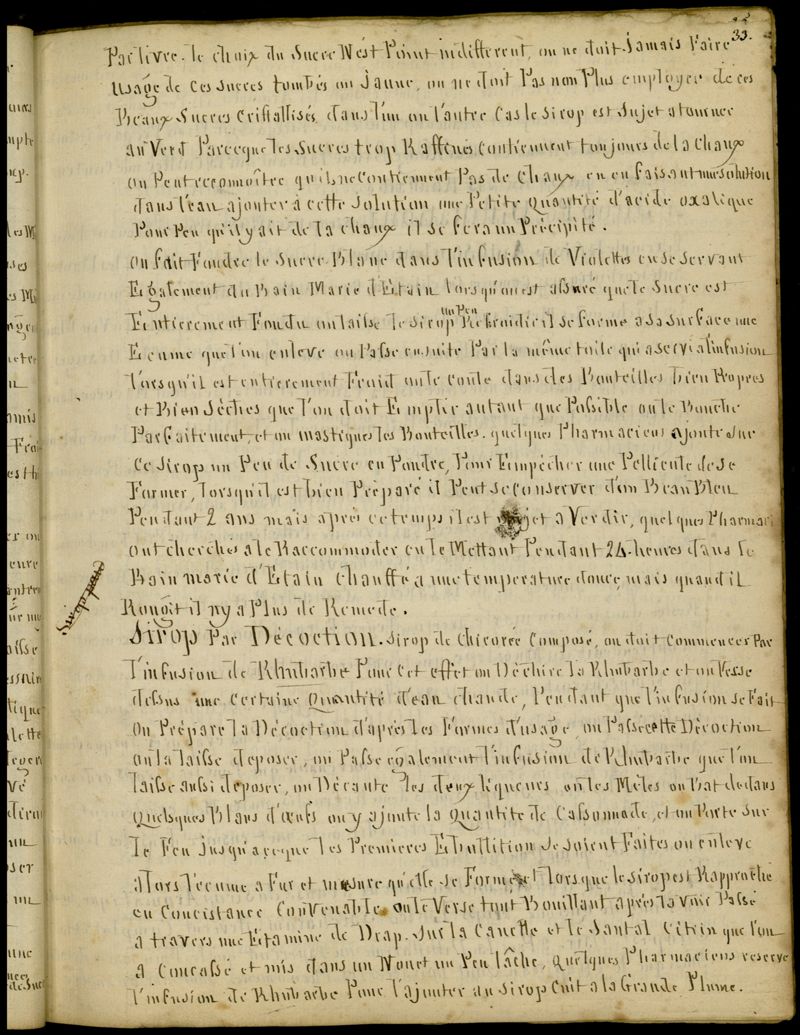 33.
Par livre. le choix du Sucre N'est Point indifferent, on ne doit Jamais Faire
usage de ces sucres tombés au Jaune, on ne doit Pas non Plus employer de ces
Beaux Sucres cristallisés, dans l'un ou l'autre Cas le sirop est sujet a tourner
au Verd Parceque les Sucres trop Raffinés Contiennent toujours de la Chaux
on Peut reconnoître qu'il ne Contiennent Pas de Chaux en en faisant une solution
dans l'eau ajouter à cette solution une Petite quantité d'acide oxalique
Pour Peu qu'il y ait de la chaux il se fera un Précipité.
on fait Foudre le sucre Blanc dans l'infusion de Violettes en se servant
Egalement du Bain Marie d'Etain lorsqu'on est assuré que le Sucre est
Entierement Fondu on laisse le sirop un Peu Refroidir il se forme a sa surface une
Ecume que l'on enleve on Passe ensuite Par la même toile qui a servi a l'infusion
lorsqu'il est entierement Froid on le coule dans des Bouteilles bien Propres
et Bien Sèches que l'on doit Emplir autant que Possible on le Bouche
Parfaitement, et on mastique les Bouteilles. quelques Pharmaciens ajoute sur
ce sirop un Peu de Sucre en Poudre, Pour Empêcher une Pellicule de se
Former, lorsqu'il est bien Préparé il Peut se conserver d'un Beau Bleu
Pendant 2 ans mais après ce temps il est sujet a Verdir, quelques Pharmaci
ont cherchés a le Raccommoder en le Mettant Pendant 24 heures dans le
Bain marie d'Etain chauffé a une temperature douce, mais quand il
Rougit il n'y a Plus de Remede.
Sirop Par Décoction. Sirop de Chicorée Composé, on doit Commencer Par
l'infusion de Rhubarbe Pour cet effet on Déchire la Rhubarbe et on Verse
dessus une certaine Quantité d'eau chaude, Pendant que l'infusion se Fait
on Prépare la Décoction d'après les Formes d'usage, on Passe cette Décoction
on la laisse deposer, on Passe egalement l'infusion de Rhubarbe que l'on
laisse aussi deposer, on Décante les deux liqueurs on les Mêles on Bat dedans
Quelques Blans d'œufs on y ajoute la Quantité de Cassonnade, et on Porte sur
le Feu jusqu'aceque les Premieres Ebullition se soient Faites on enleve
alors l'ecume a Fur et mesure qu'elle se Forme et lorsque le sirop est Rapproché
en Concistance Convenable on le Verse tout Bouillant après l'avoir Passé
a travers une Etamine de Drap. Sur la Canelle et le Santal Citrin que l'on
a Concassé et mis dans un Nouet un Peu lâche, Quelques Pharmaciens reserve
l'infusion de Rhubarbe Pour l'ajouter au sirop Cuit a la Grande Plume.